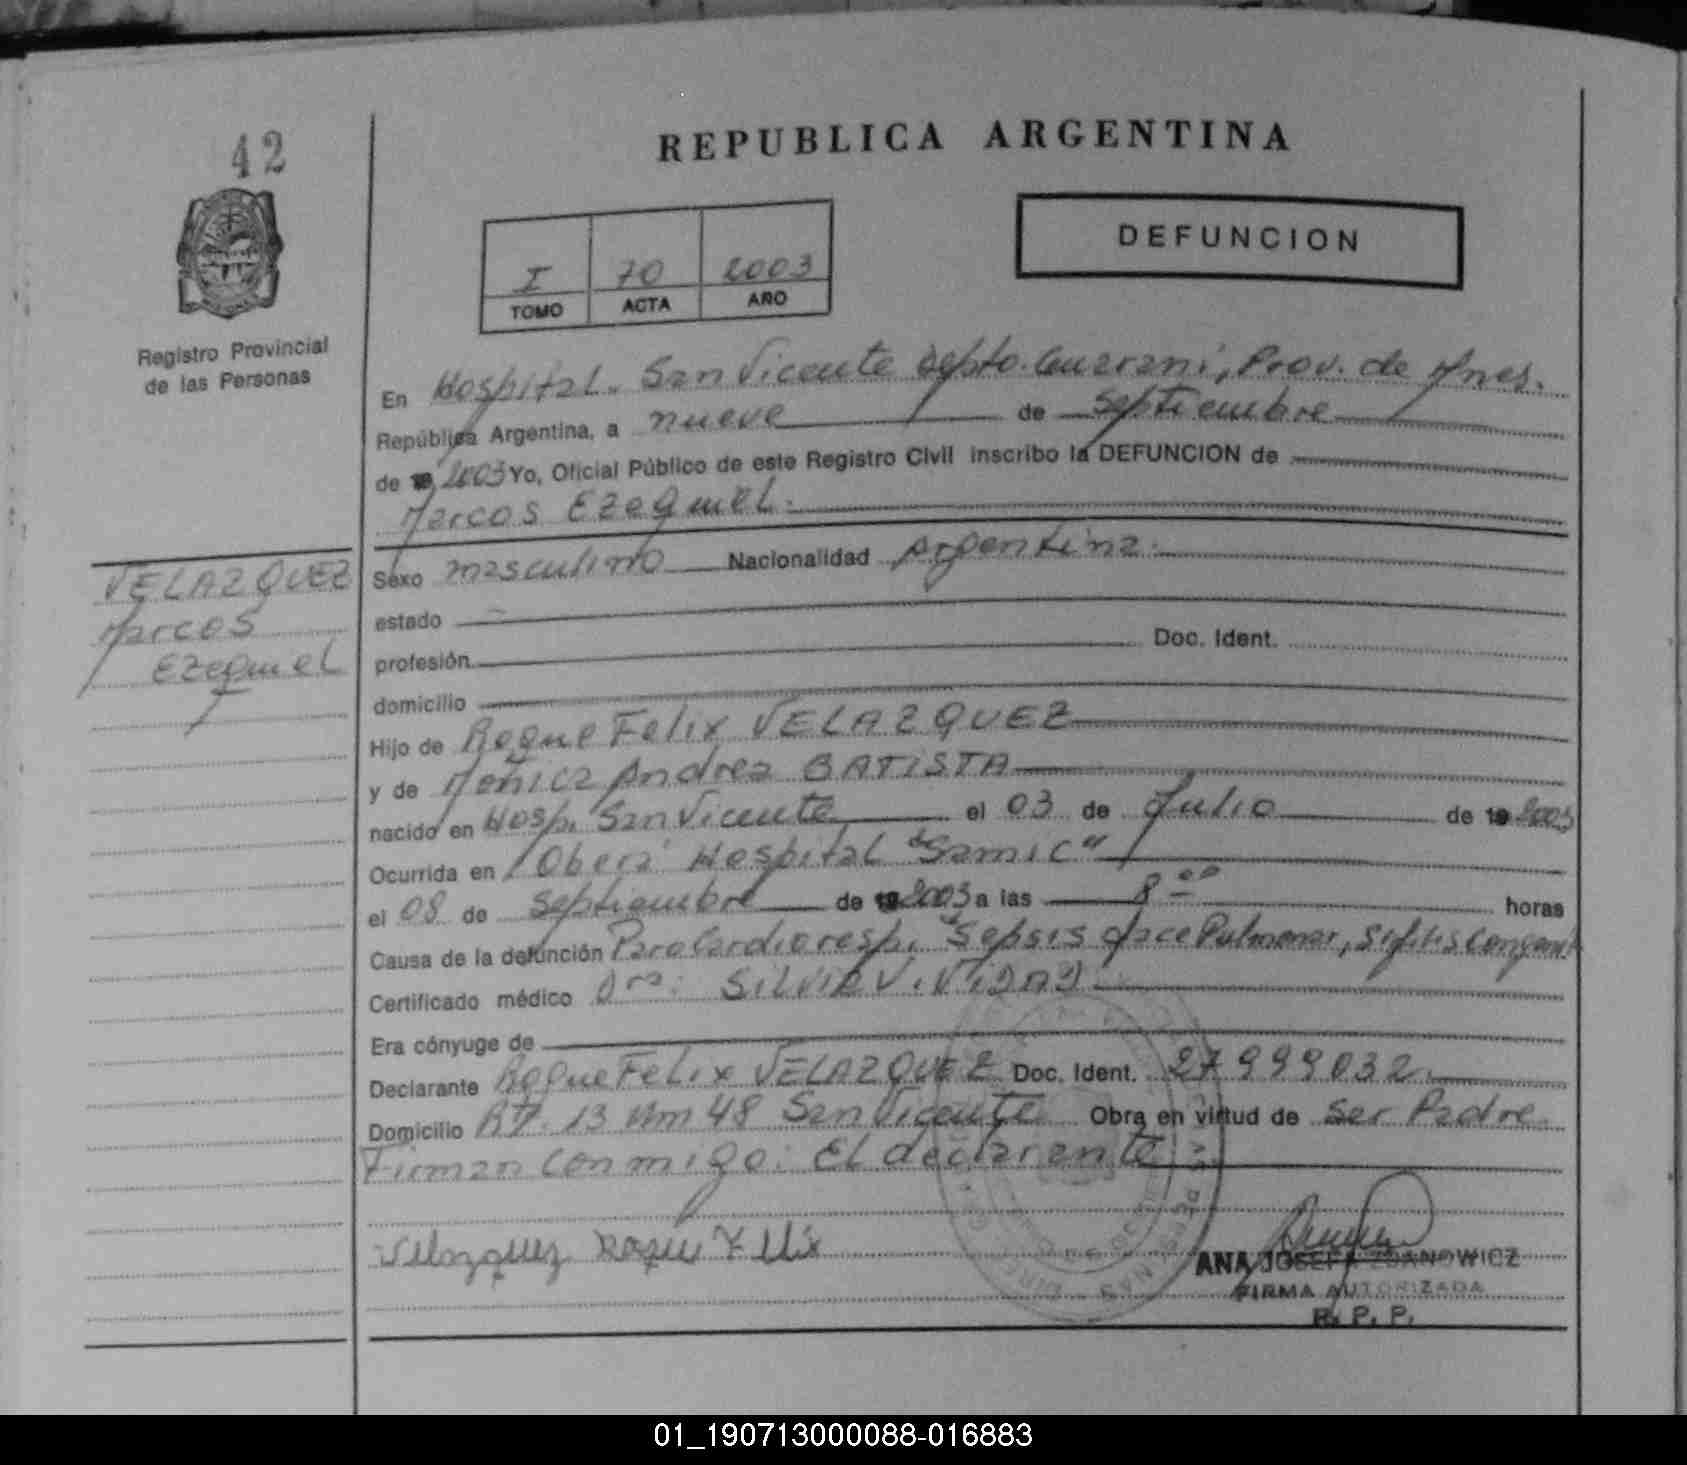 42
REPUBLICA ARGENTINA
DEFUNCION
I 70 2003
TOMO ACTA AÑO
Registro Provincial
de las Personas
En Hospital. San Vicente Depto. Guarani, Prov. de Mnes.
República Argentina, a nueve de Septiembre
de 19 2003 Yo, Oficial Público de este Registro Civil inscribo la DEFUNCION de
Marcos Ezequiel.
VELAZQUEZ
Marcos
Ezequiel
Sexo masculino Nacionalidad Argentina.
estado
profesión Doc. Ident.
domicilio
Hijo de Roque Felix VELAZQUEZ
y de Monica Andrea BATISTA
nacido en Hosp. San Vicente el 03 de Julio de 19 2003
Ocurrida en Oberá Hospital "Samic"
el 08 de Septiembre de 19 2003 a las 8 00 horas
Causa de la defunción Paro Cardioresp. Sepsis Pulmonar,
Certificado médico Dra: SILVIA V.
Era cónyuge de
Declarante Roque Felix VELAZQUEZ Doc. Ident. 27999032.
Domicilio Rta. 13 Km 48 San Vicente Obra en virtud de Ser Padre.
Firman conmigo: El declarante
Velazquez Roque Felix
ANA JOSEFA ZDANOWICZ
FIRMA AUTORIZADA
R. P. P.
01_190713000088-016883